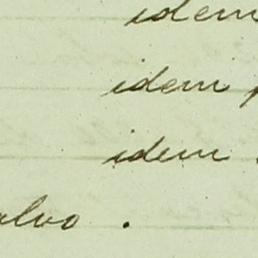 idem
idem
idem